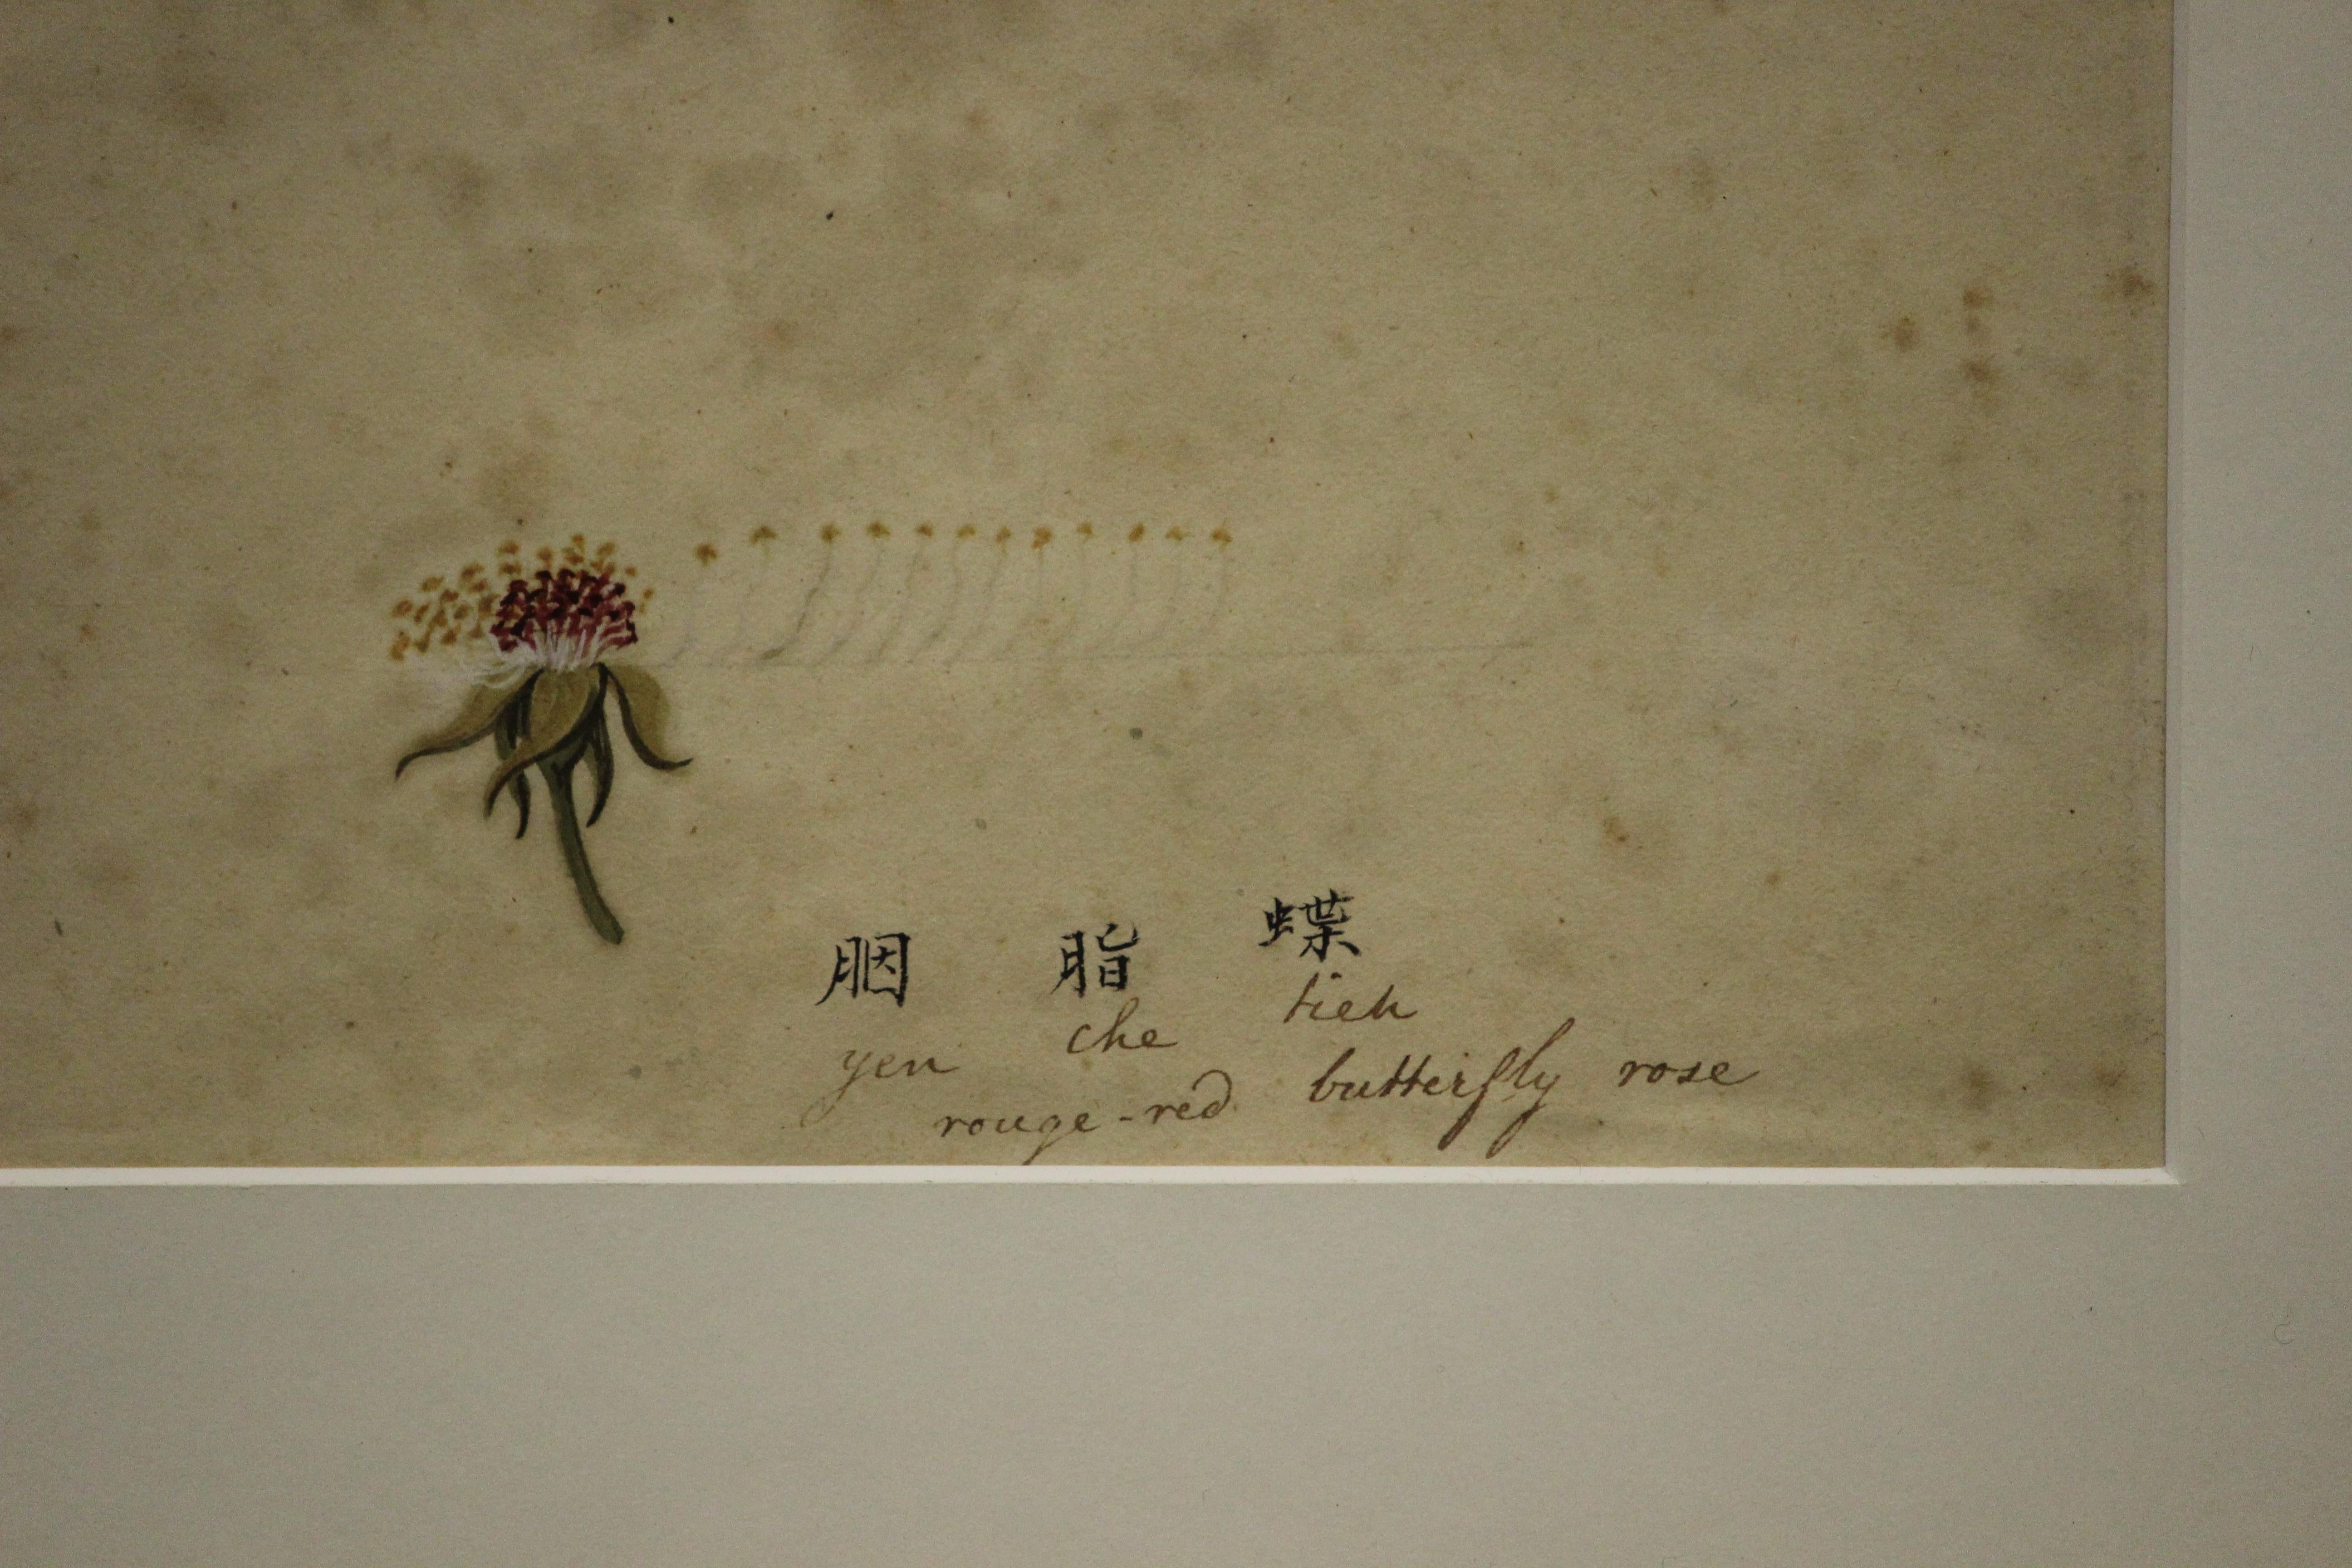 胭 脂 蝶
yen che tieh
rouge-red butterfly rose